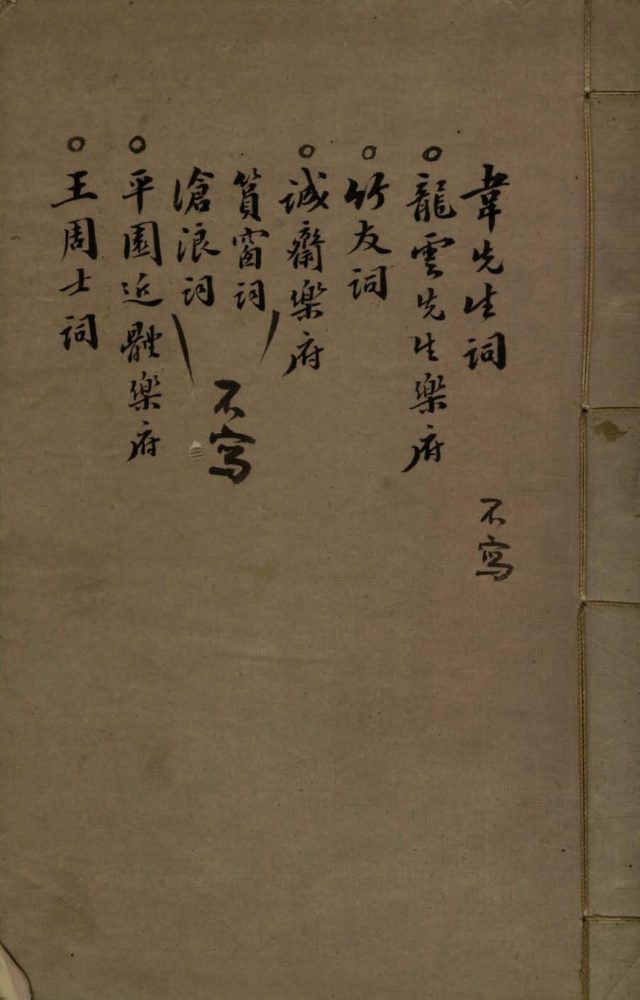 韋先生詞 不寫
○龍雲先生樂府
○竹友詞
○誠齋樂府
篔窗詞
滄浪詞
不寫
○平園近體樂府
○王周士詞